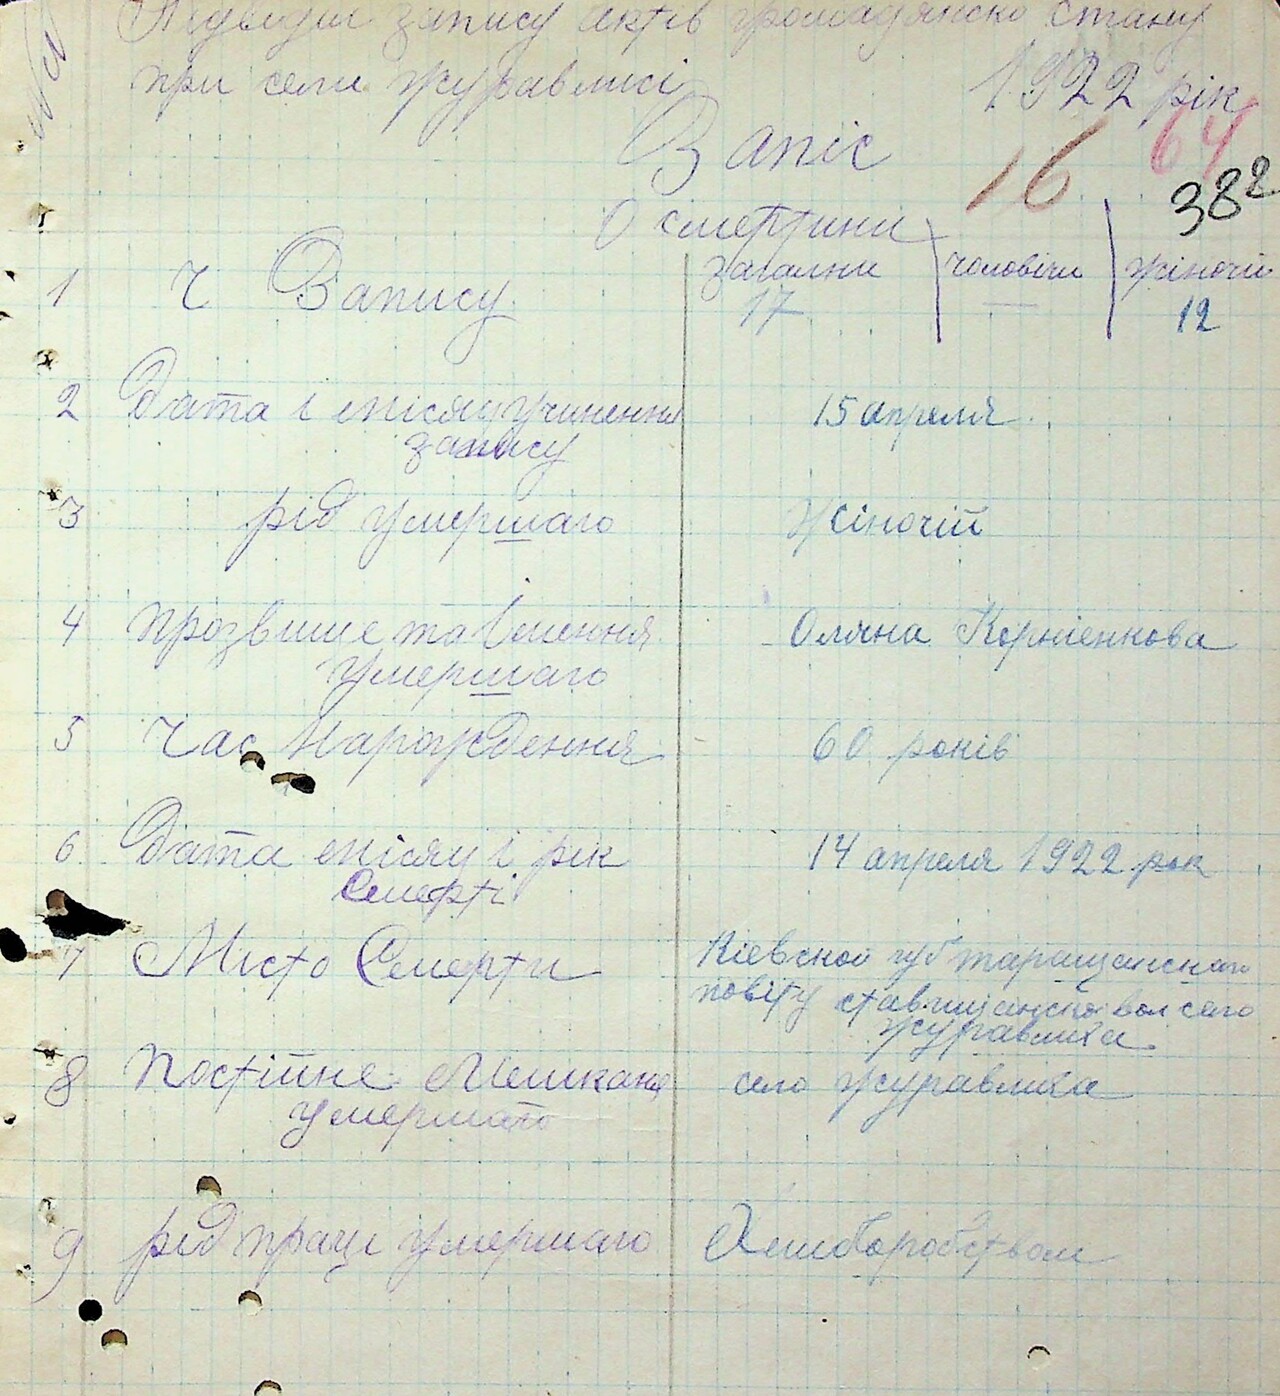 Підвідділ запису актів громадянско стану
при сели Журавлисі 1922 рік
Запіс 16 64
О смертини 382
1 Ч Запису загални чоловічи жіночій
17 — 12
2 Дата і місяц учинення 15 апреля
запису
3 рід умершаго Жіночій
4 прозвище та Імення Оляна Корніенкова
умершаго
5 Час Нарождення 60 років
6 Дата місяц і рік 14 апреля 1922 рок
Смерті
7 Місто Смерти Кіевской губ таращанскаго
повіту ставищанско вол село
Журавлиха
8 Постійне Мешкане село Журавлиха
умершаго
9 рід праці умершаго Хлиборобством